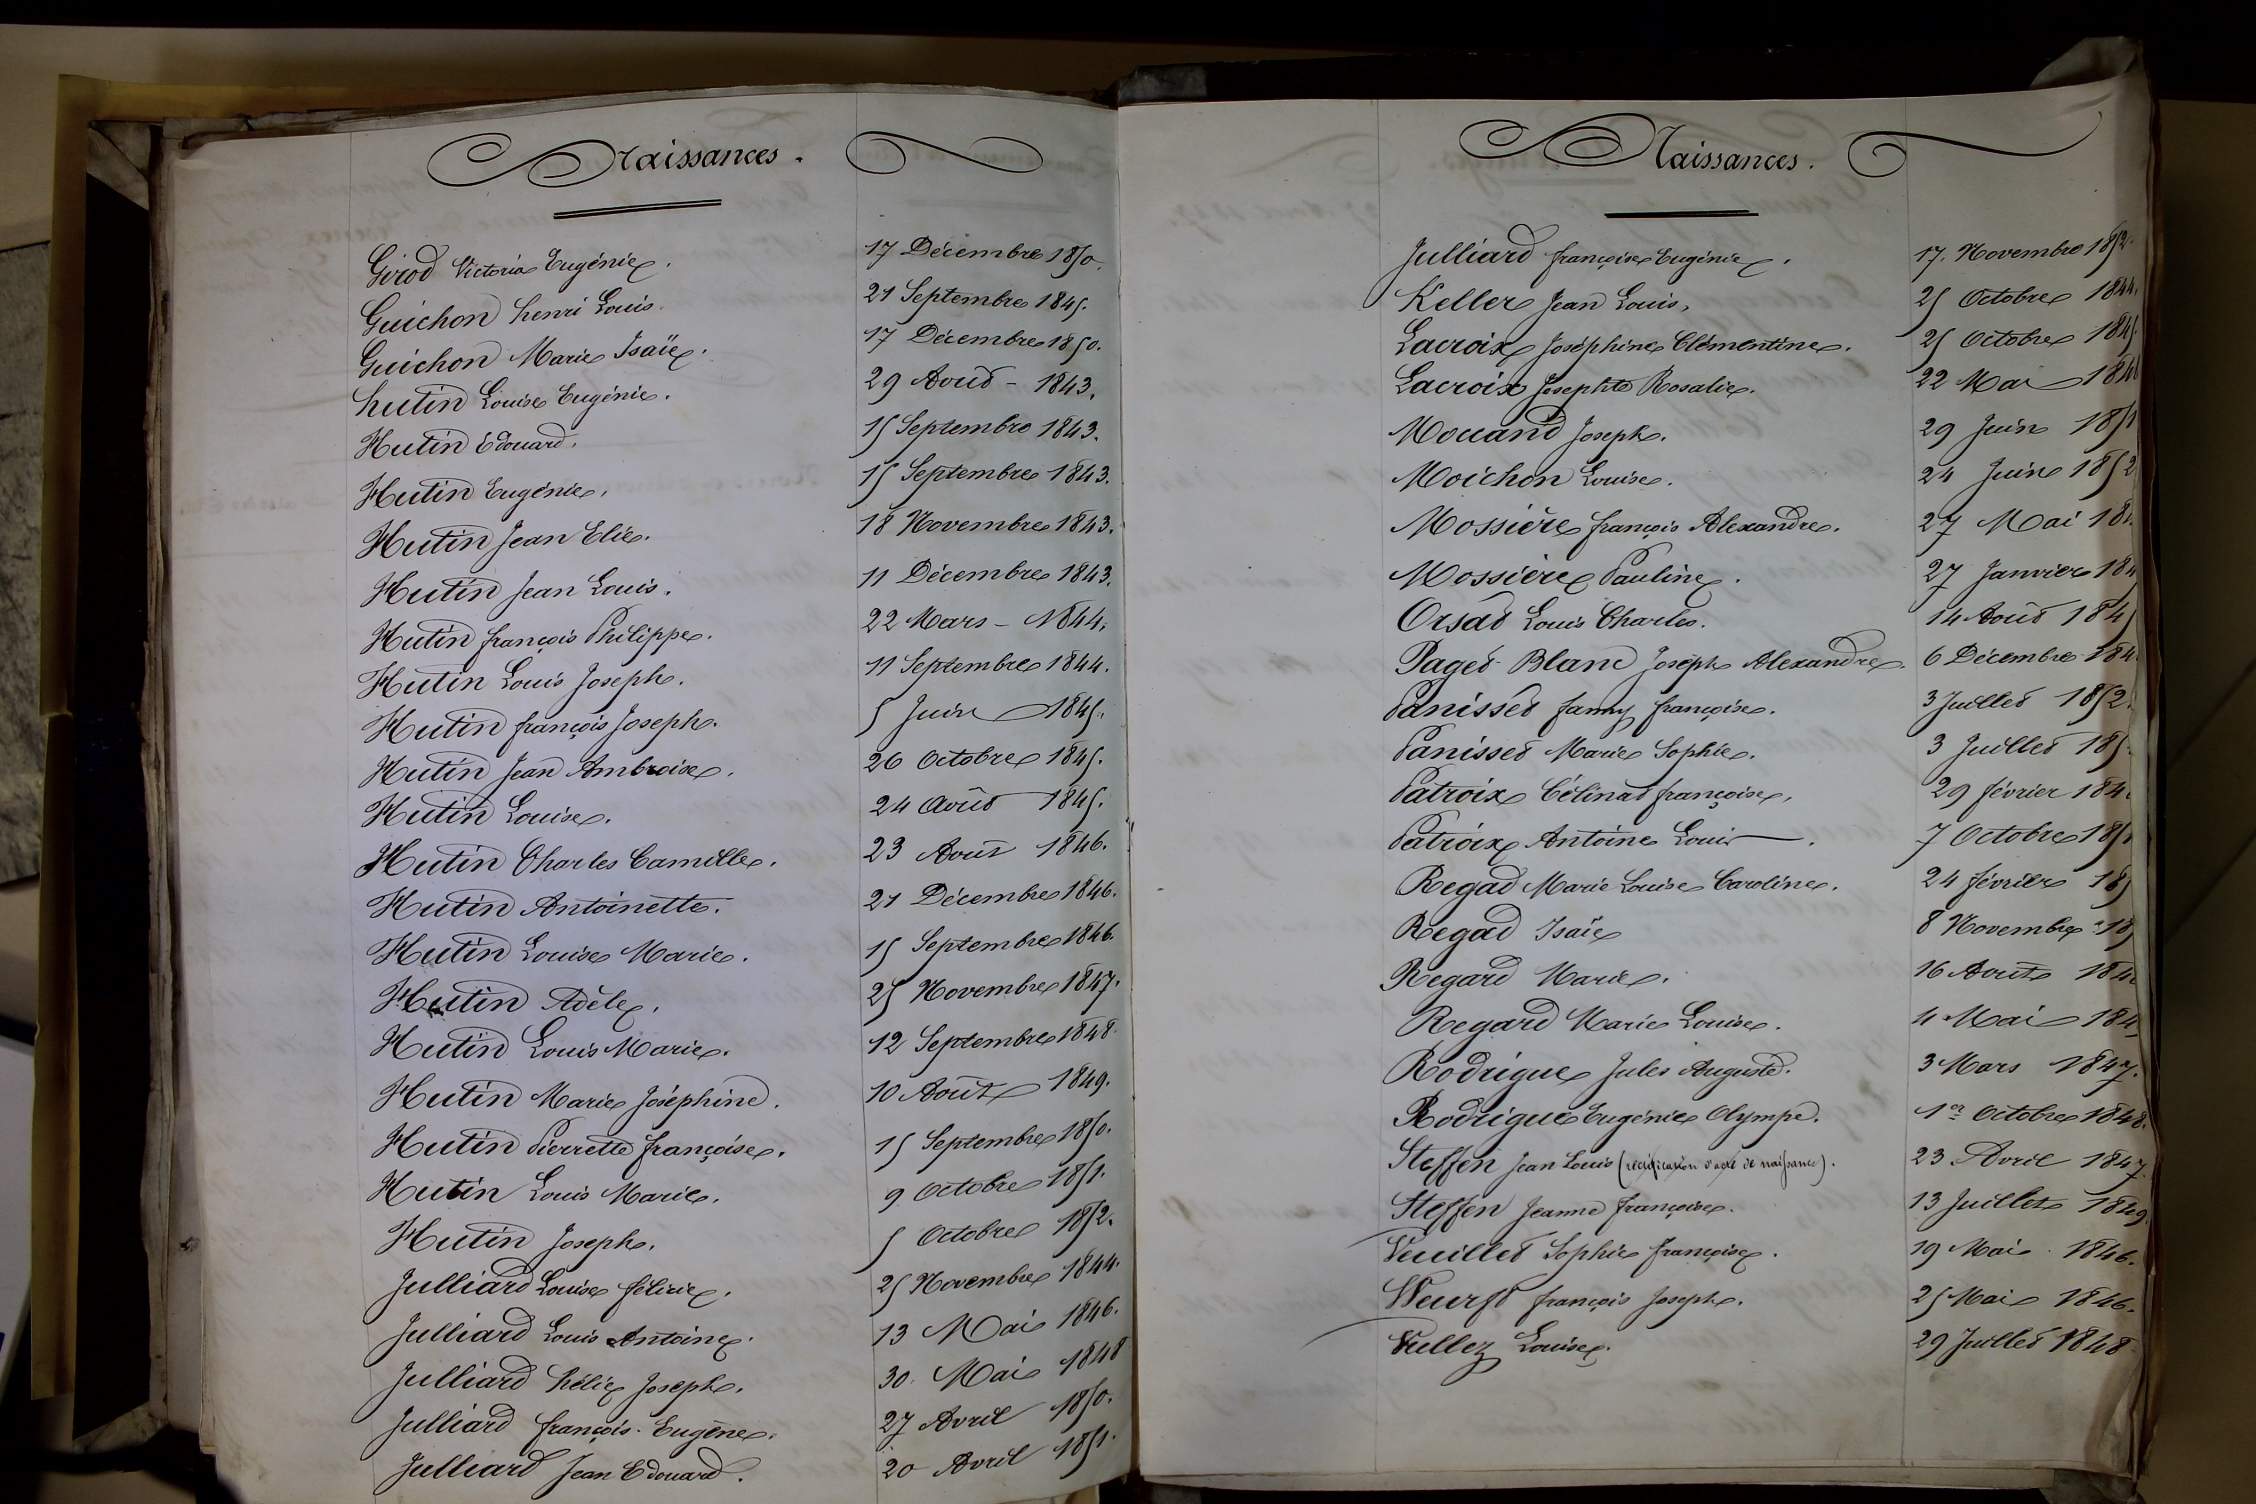 Naissances.
Girod Victoria Eugénie. 17 Décembre 1850.
Guichon henri Louis. 21 Septembre 1845.
Guichon Marie Isaïe. 17 Décembre 1850.
hutin Louise Eugénie. 29 Août - 1843.
Hutin Edouard. 15 Septembre 1843.
Hutin Eugénie. 15 Septembre 1843.
Hutin Jean Elie. 18 Novembre 1843.
Hutin Jean Louis. 11 Décembre 1843.
Hutin françois Philippe. 22 Mars - 1844.
Hutin Louis Joseph. 11 Septembre 1844.
Hutin françois Joseph. 5 Juin 1845.
Hutin Jean Ambroise. 26 Octobre 1845.
Hutin Louise. 24 Août 1845.
Hutin Charles Camille. 23 Août 1846.
Hutin Antoinette. 21 Décembre 1846.
Hutin Louise Marie. 15 Septembre 1846.
Hutin Adèle. 25 Novembre 1847.
Hutin Louis Marie. 12 Septembre 1848
Hutin Marie Joséphine. 10 Août 1849.
Hutin Pierrette françoise. 15 Septembre 1850.
Hutin Louis Marie. 9 Octobre 1851.
Hutin Joseph. 5 Octobre 1852.
Julliard Louise félicie. 25 Novembre 1844.
Julliard Louis Antoine. 13 Mai 1846.
Julliard hélie Joseph. 30 Mai 1848
Julliard françois Eugène. 27 Avril 1850.
Julliard Jean Edouard. 20 Avril 1851.
Naissances.
Julliard françoise Eugénie. 17. Novembre 1852.
Keller Jean Louis. 25 Octobre 1844.
Lacroix Joséphine Clémentine. 25 Octobre 1845.
Lacroix Josephte Rosalie. 22 Mai
Mouand Joseph. 29 Juin 1851
Moichon Louise. 24 Juin 1852
Mossière françois Alexandre. 27 Mai
Mossière Pauline. 27 Janvier
Orsat Louis Charles. 14 Août 1845
Paget-Blanc Joseph Alexandre. 6 Décembre
Panisset fanny françoise. 3 Juillet 1852.
Panisset Marie Sophie. 3 Juillet
Patroix Célina françoise. 29 février
Patroix Antoine Louis. 7 Octobre 1851
Regad Marie Louise Caroline. 24 février
Regad Isaïe 8 Novembre
Regard Marie. 16 Août
Regard Marie Louise. 11 Mai
Rodrigue Jules Auguste. 3 Mars 1847.
Rodrigue Eugénie Olympe. 1er Octobre 1848.
Steffen Jean Louis (rectification d'acte de naissance). 23 Avril 1847.
Steffen Jeanne françoise. 13 Juillet 1849.
Veuillet Sophie françoise. 19 Mai 1846.
Weurst françois Joseph. 25 Mai 1846.
Vullez Louise. 29 Juillet 1848